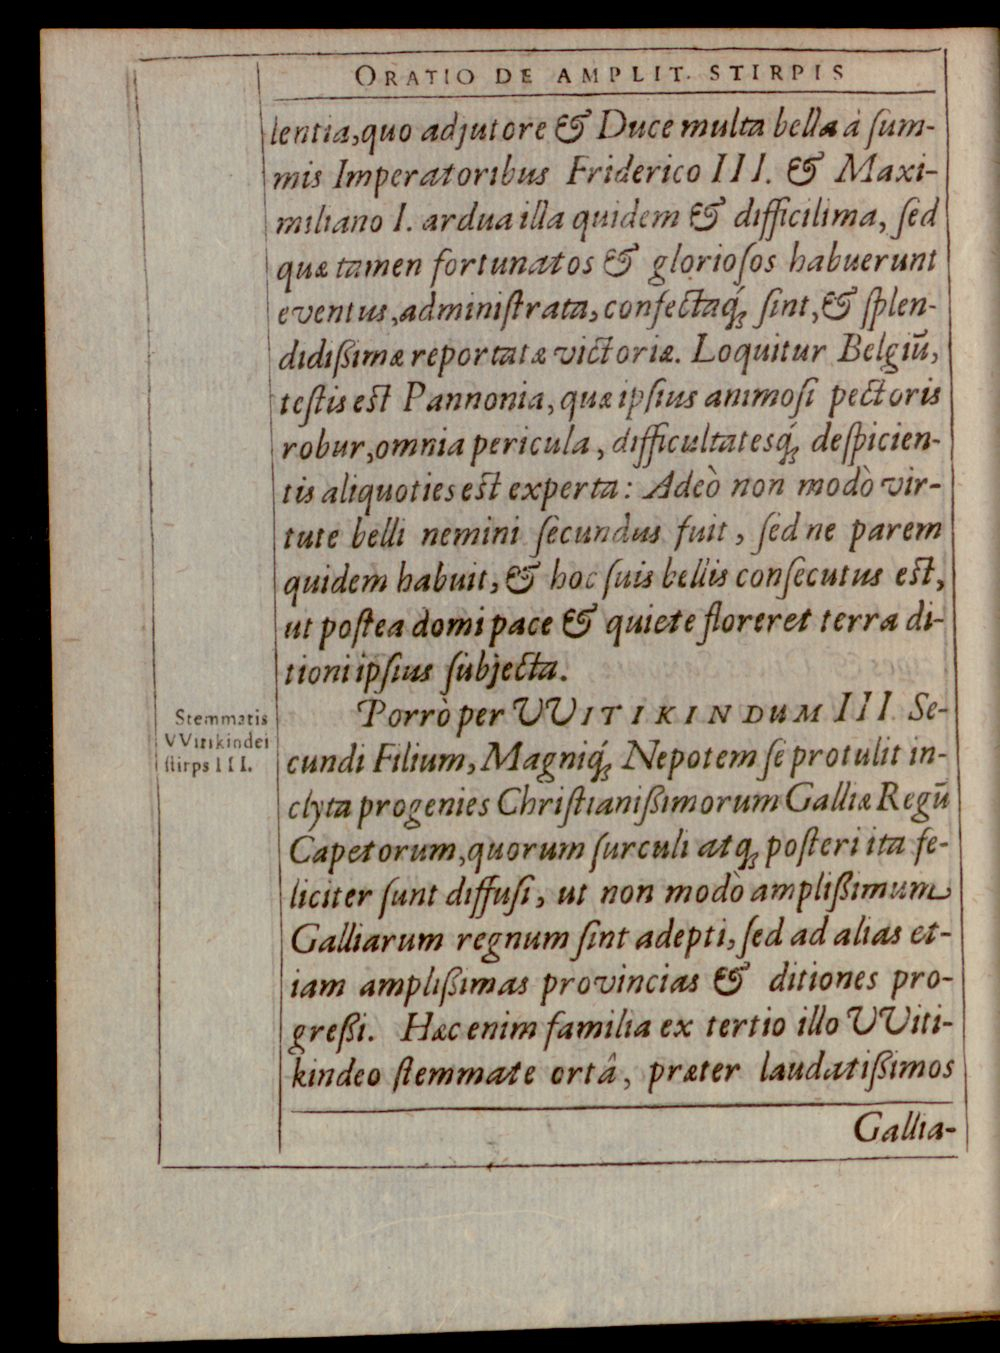 ORATIO DE AMPLIT. STIRPIS
lentia, quo adjutore & Duce multa bella à ſum-
mis Imperatoribus Friderico III. & Maxi-
miliano I. ardua illa quidem & difficilima, ſed
quæ tamen fortunatos & glorioſos habuerunt
eventus, adminiſtrata, confectaq́; ſint, & ſplen-
didißimæ reportatæ victoriæ. Loquitur Belgiū,
teſtis eſt Pannonia, quæ ipſius animoſi pectoris
robur, omnia pericula, difficultatesq́; deſpicien-
tis aliquoties eſt experta: Adeò non modò vir-
tute belli nemini ſecundus fuit, ſed ne parem
quidem habuit, & hoc ſuis bellis conſecutus eſt,
ut poſtea domi pace & quiete floreret terra di-
tioni ipſius ſubjecta.
Porrò per VVITIKINDUM III Se-
Stemmatis
VVitikindei
ſtirps III.
cundi Filium, Magniq́; Nepotem ſe protulit in-
clyta progenies Chriſtianißimorum Galliæ Regū
Capetorum, quorum ſurculi atq; poſteri ita fe-
liciter ſunt diffuſi, ut non modò amplißimum
Galliarum regnum ſint adepti, ſed ad alias et-
iam amplißimas provincias & ditiones pro-
greßi. Hæc enim familia ex tertio illo VViti-
kindeo ſtemmate ortâ, præter laudatißimos
Gallia-